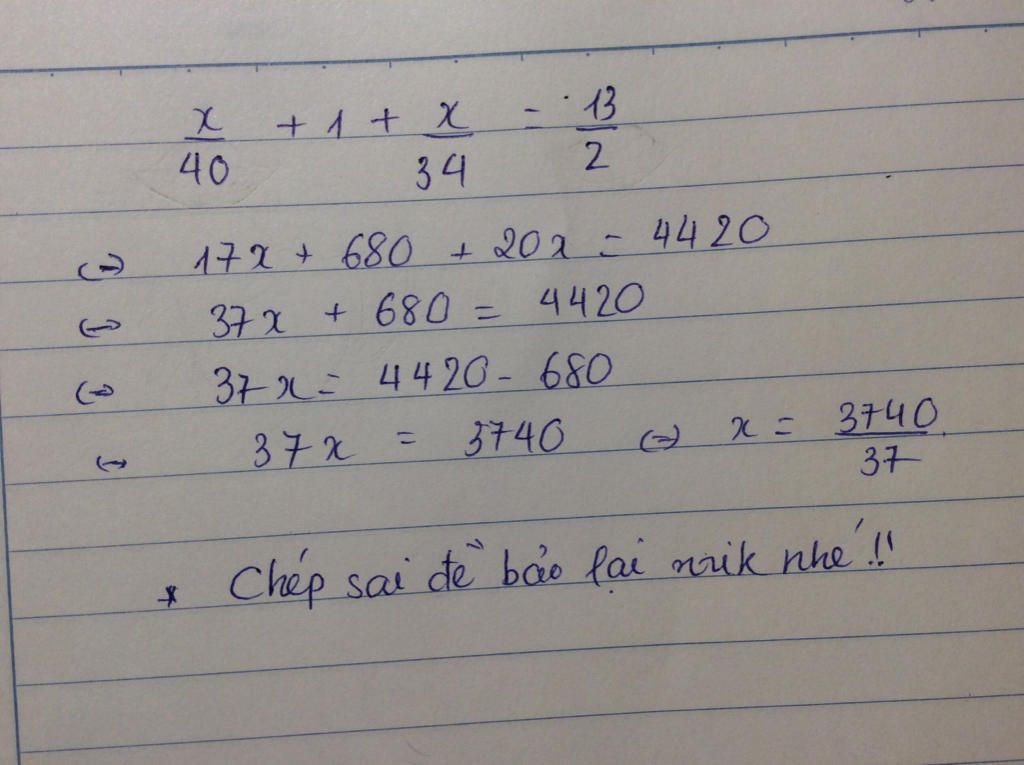 x/40 + 1 + x/34 = 13/2
<=> 17x + 680 + 20x = 4420
<=> 37x + 680 = 4420
<=> 37x = 4420 - 680
<=> 37x = 3740 <=> x = 3740/37
* Chép sai đề bảo lại nhé !!